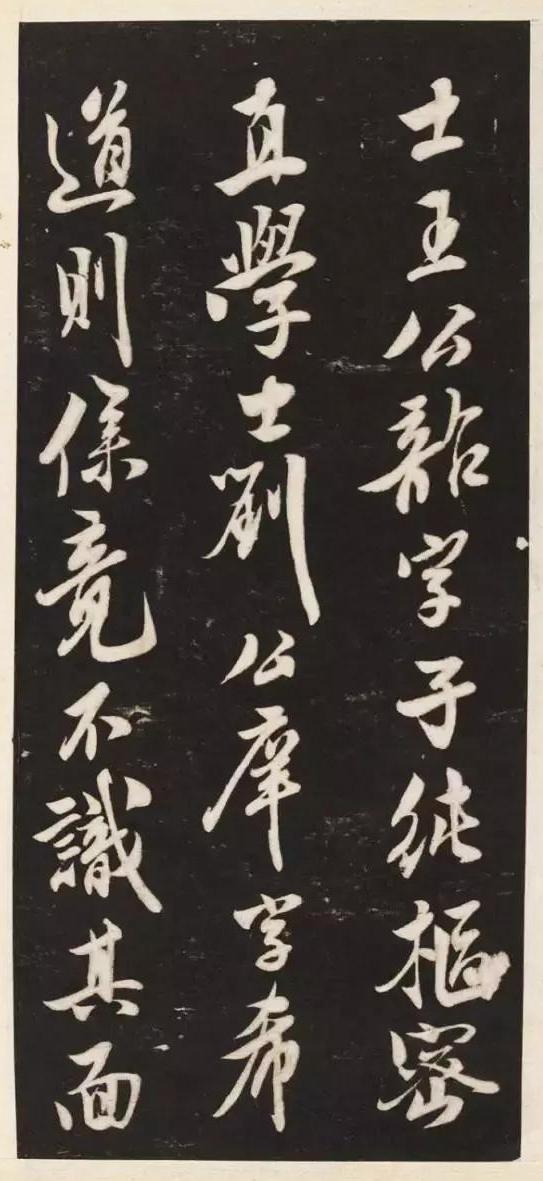 士王公韶字子純樞密
直學士劉公庠字希
道則僕竟不識其面